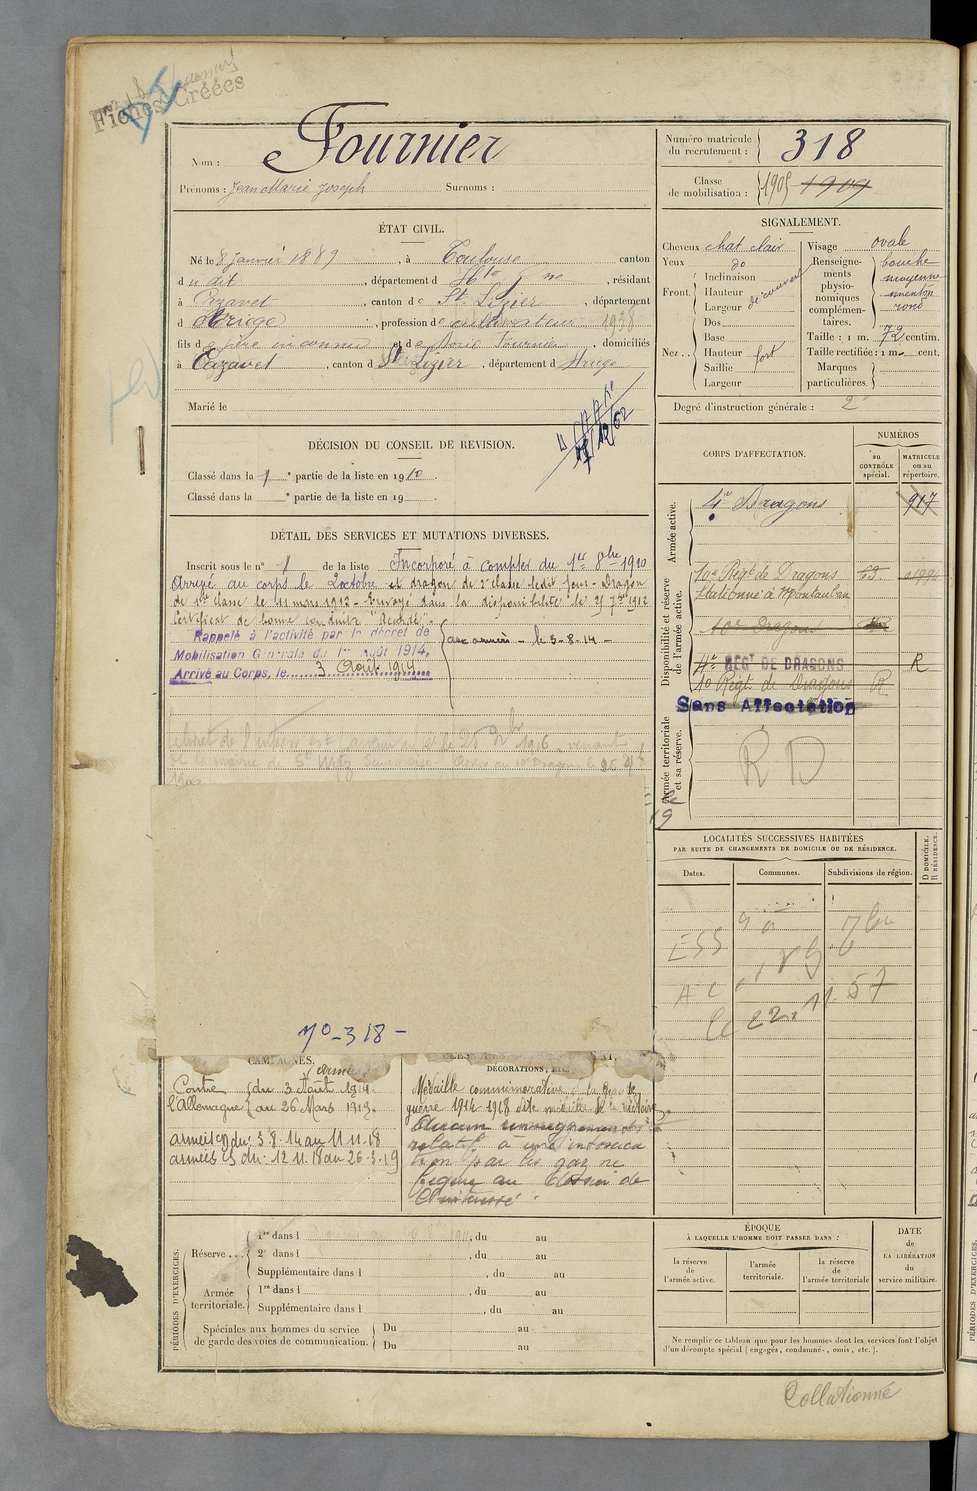 Fiches Créées
Nom : Fournier
Prénoms : Jean Marie Joseph Surnoms :
Numéro matricule du recrutement : 318
Classe de mobilisation : 1905 1909
ÉTAT CIVIL.
Né le 8 Janvier 1889, à Toulouse canton
du dit, département d Hte Gne, résidant
à Cazavet, canton de St Lizier, département
d Ariège, profession de cultivateur 1938
fils de père inconnu et de Fournier, domiciliés
à Cazavet, canton d St Lizier, département d Ariège
Marié le
17/12/52
SIGNALEMENT.
Cheveux chat clair
Yeux do
Front
Inclinaison
Hauteur
Largeur découvert
Nez
Dos
Base
Hauteur fort
Saillie
Largeur
Visage ovale
Renseignements physionomiques complémentaires. bouche moyenne menton rond
Taille : 1 m. 72 centim.
Taille rectifiée : 1 m. cent.
Marques particulières.
Degré d'instruction générale : 2
DÉCISION DU CONSEIL DE REVISION.
Classé dans la 1 e partie de la liste en 1910.
Classé dans la e partie de la liste en 19
CORPS D'AFFECTATION.
NUMÉROS
au CONTRÔLE spécial.
MATRICULE ou au répertoire.
Armée active.
4e Dragons 917
Disponibilité et réserve de l'armée active.
10e Régt de Dragons
stationné à Montauban
10e Dragons
4e REGT DE DRAGONS R
10 Régt de Dragons R
Sans Affectation
Armée territoriale et sa réserve.
R D
DÉTAIL DES SERVICES ET MUTATIONS DIVERSES.
Inscrit sous le n° 1 de la liste Incorporé à compter du 1er 8bre 1910
Arrivé au corps le 2 octobre et dragon de 2e classe ledit jour - Dragon
de 1re classe le 11 mars 1912 - Envoyé dans la disponibilité le 25 7bre 1912
Certificat de bonne conduite "Accordé".
Rappelé à l'activité par le décret de
Mobilisation Générale du 1er août 1914.
Arrivé au Corps, le 3 Août 1914
aux armées - le 3-8-14 -
N° 318 -
LOCALITÉS SUCCESSIVES HABITÉES
PAR SUITE DE CHANGEMENTS DE DOMICILE OU DE RÉSIDENCE.
Dates.
Communes.
Subdivisions de région.
D DOMICILE. R RÉSIDENCE.
CAMPAGNES.
Contre l'Allemagne
du 3 Août 1914
au 26 Mars 1919.
armées du 3.8.14 au 11.11.18
armées du 12.11.18 au 26.3.19
DÉCORATIONS, ETC.
Médaille commémorative de la grande
guerre 1914-1918 dite médaille de la victoire
Aucun renseignement
relatif à une intoxica
tion par les gaz ne
figure au dossier de
l'intéressé.
PÉRIODES D'EXERCICES.
Réserve
1re dans l , du au
2e dans l , du au
Supplémentaire dans l , du au
Armée territoriale.
1re dans l , du au
Supplémentaire dans l , du au
Spéciales aux hommes du service de garde des voies de communication.
Du au
Du au
ÉPOQUE
À LAQUELLE L'HOMME DOIT PASSER DANS :
la réserve de l'armée active.
l'armée territoriale.
la réserve de l'armée territoriale
DATE de LA LIBÉRATION du service militaire.
Ne remplir ce tableau que pour les hommes dont les services font l'objet
d'un décompte spécial (engagés, condamnés, omis, etc.).
Collationné